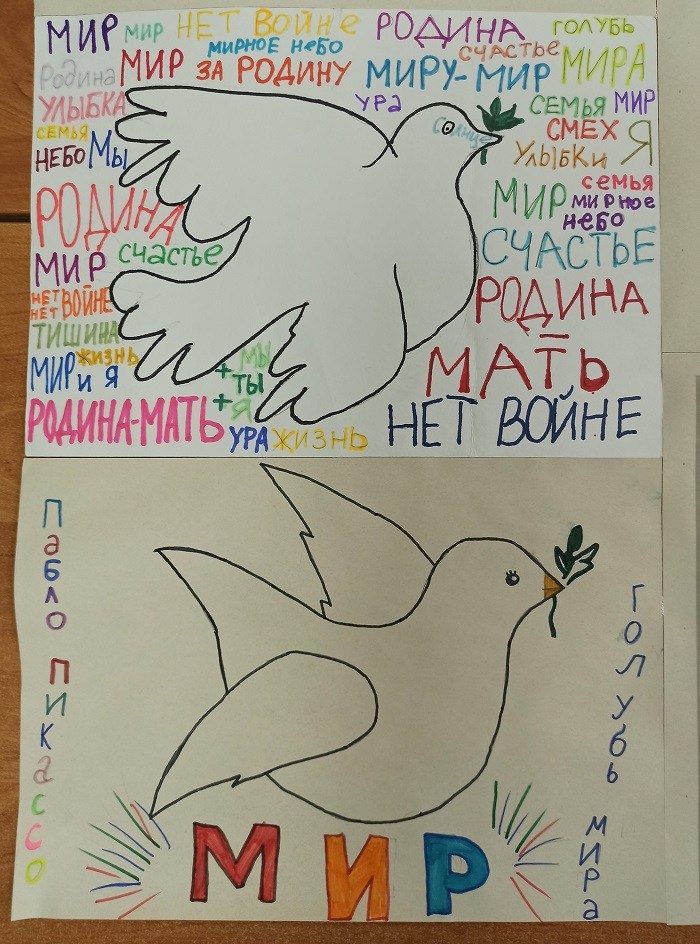 МИР МИР НЕТ ВОЙНЕ РОДИНА ГОЛУБЬ
МИРНОЕ НЕБО СЧАСТЬЕ
Родина МИР ЗА РОДИНУ МИРУ-МИР МИРА
УЛЫБКА УРА СЕМЬЯ МИР
СЕМЬЯ Солнце СМЕХ Я
НЕБО МЫ Улыбки
РОДИНА МИР семья
МИРНОЕ
НЕБО
МИР счастье СЧАСТЬЕ
НЕТ ВОЙНЕ РОДИНА
НЕТ
ТИШИНА МАТЬ
МИР ЖИЗНЬ + МЫ
и Я ТЫ
РОДИНА-МАТЬ + Я
УРА ЖИЗНЬ НЕТ ВОЙНЕ
Пабло Пикассо
Голубь мира
МИР